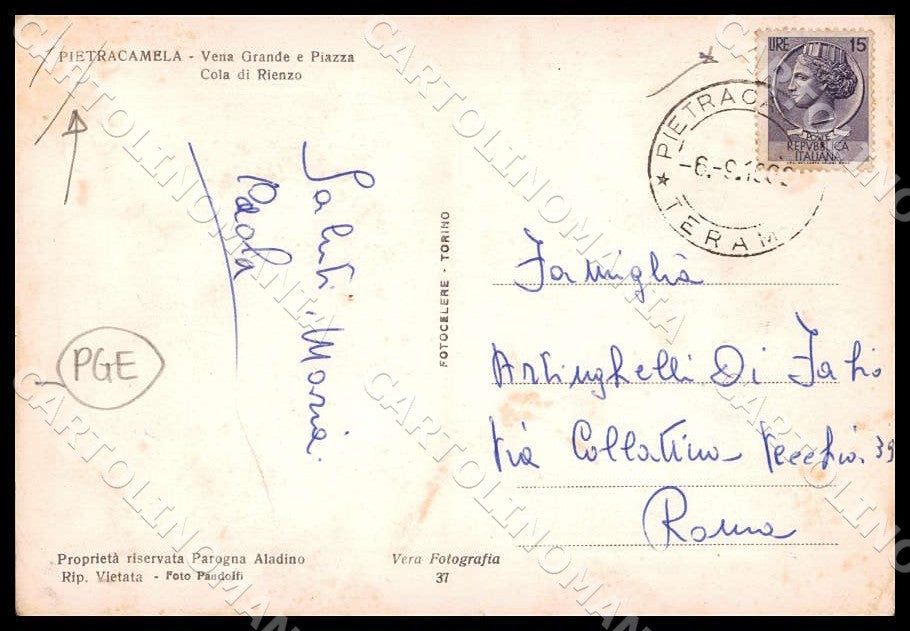 PIETRACAMELA - Vena Grande e Piazza
Cola di Rienzo
LIRE 15
REPVBBLICA
ITALIANA
PIETRACA
-6.-9.19
TERAM
Saluti Maria
Paola
FOTOCELERE - TORINO
Famiglia
Artinghelli Di Fabio
Via Collatina Vecchia 39
Roma
PGE
Proprietà riservata Parogna Aladino
Rip. Vietata - Foto Pandolfi
Vera Fotografia
37
CARTOLINOMANIA